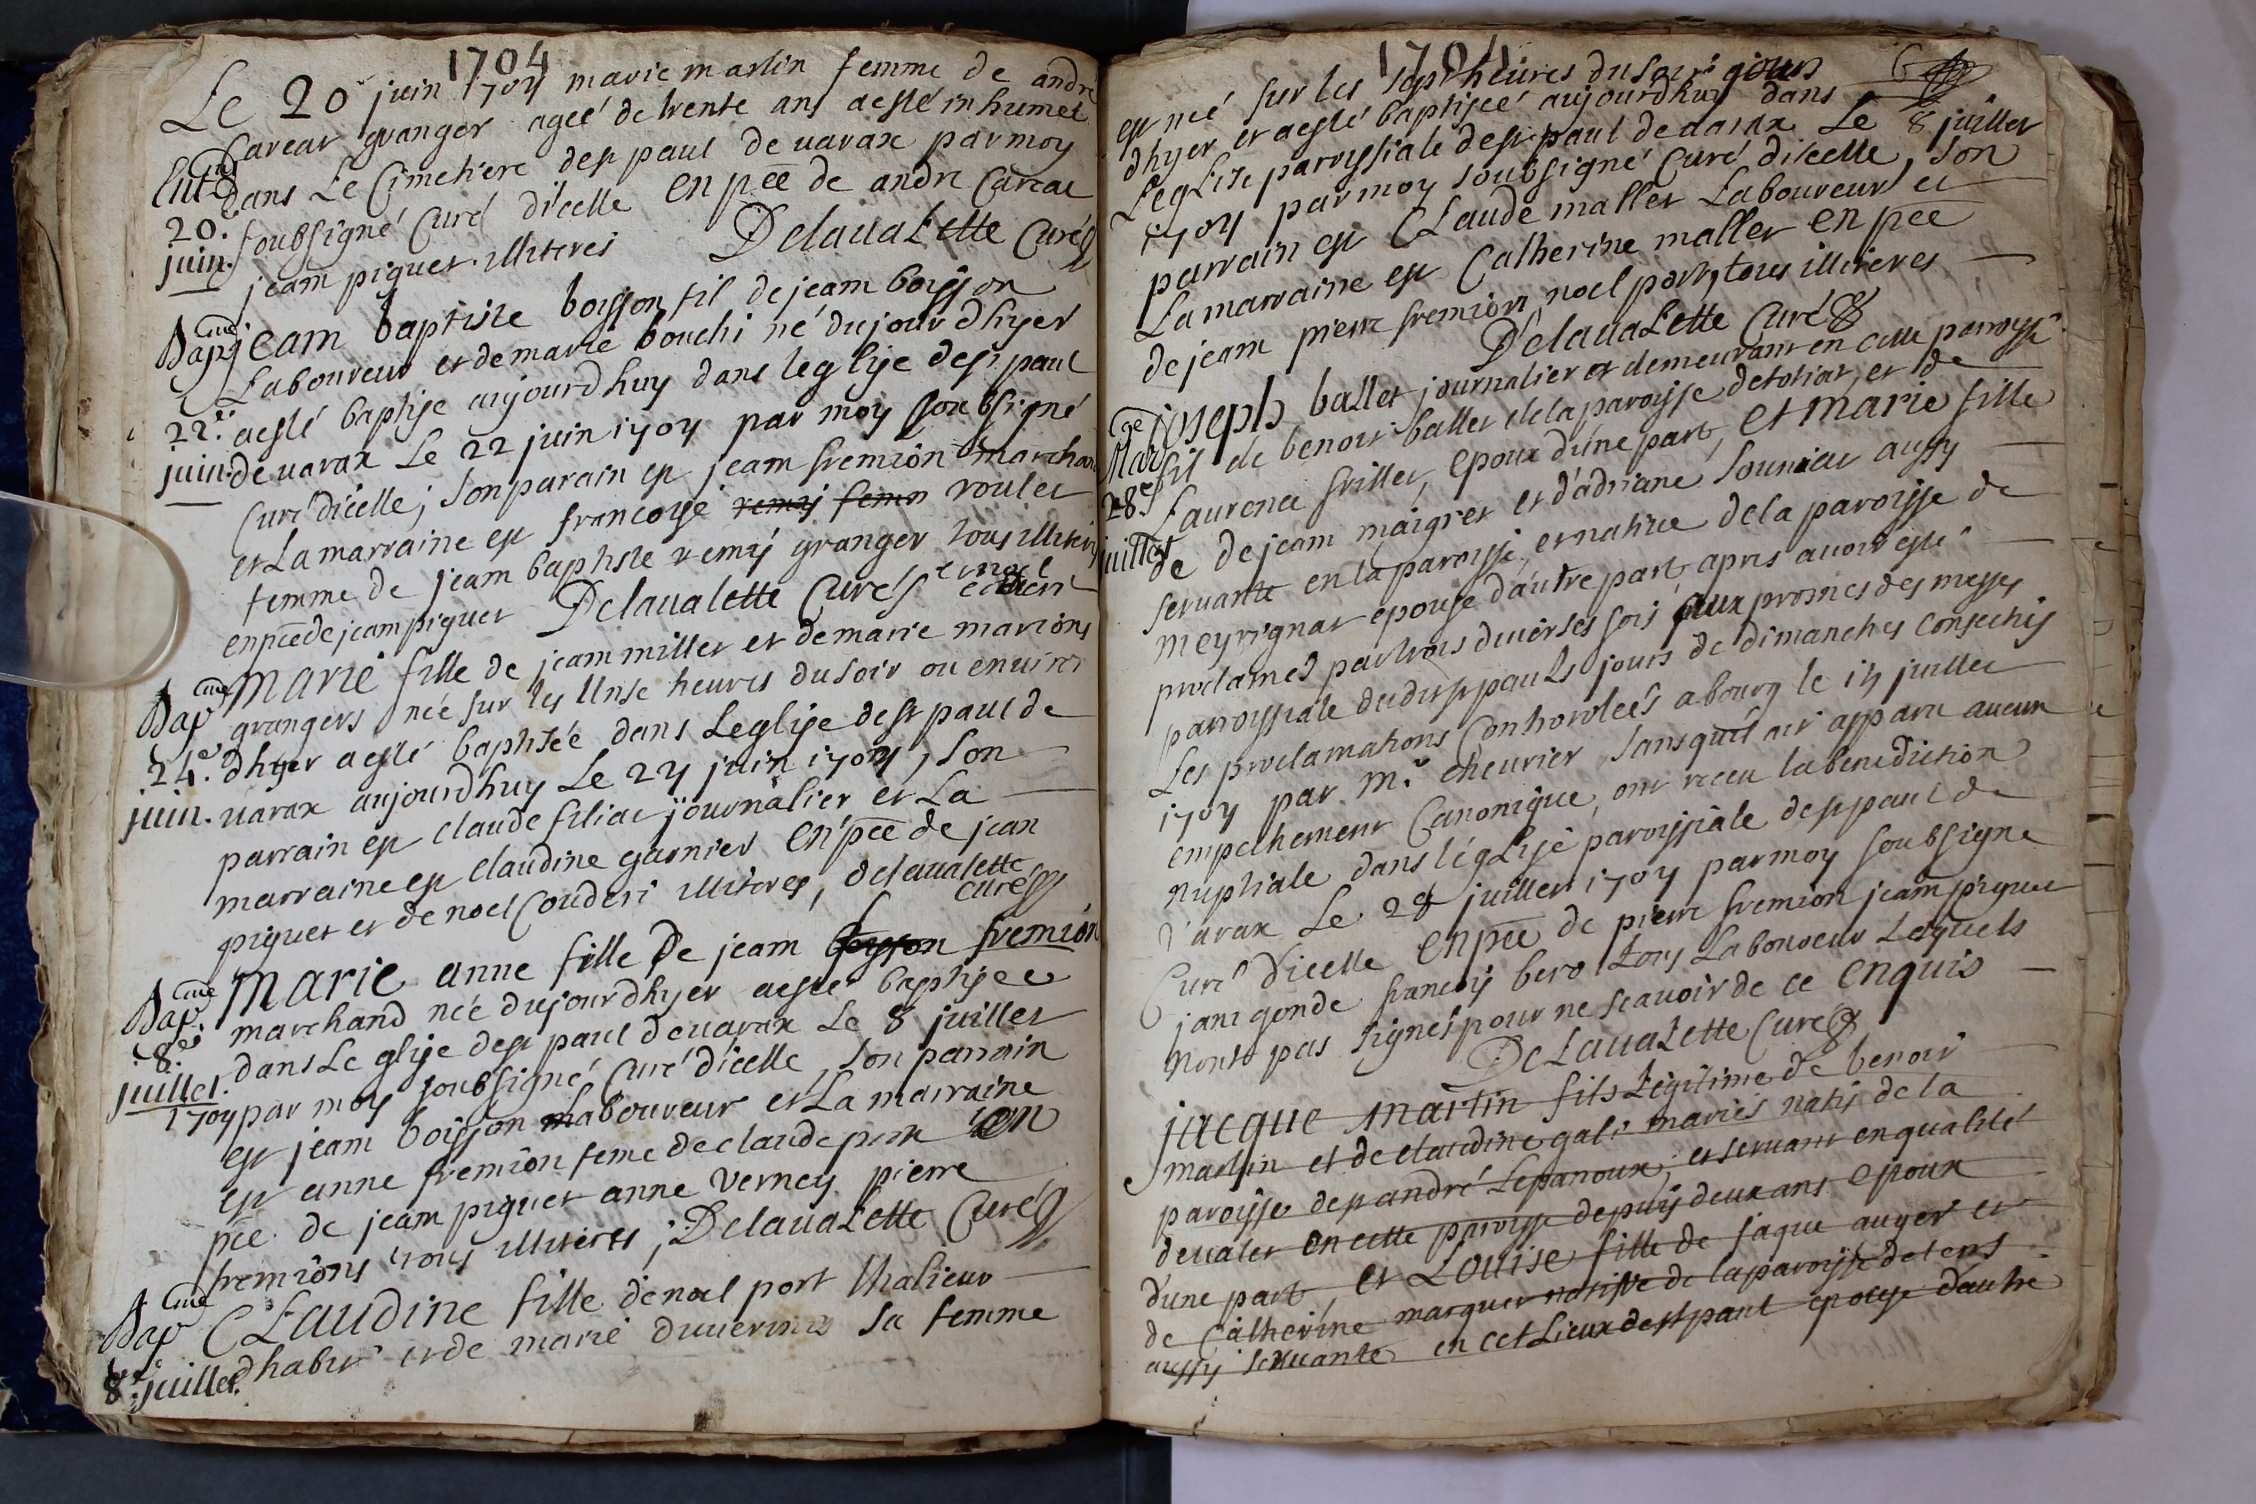 1704
Le 20e juin 1704 marie martin femme de andré
Careat granger ageé de trente ans aesté inhumeé
dans Le Cimetiere de st paul de uarax par moy
soubsigné Curé dicelle en pce de andre Careat
jeam piguet illiterés Delaualette Curé
20e
juin.
Bapme
22e
juin.
jeam baptiste boisson fil de jeam boisson
Laboureur et de marie bouchi né dujour dhyer
aesté baptise aujourdhuy dans leglise de st paul
de uarax Le 22 juin 1704 par moy soubsigné
Curé dicelle; Son parain est jeam fremion marchand
et La marraine est francoise remy femm roulet
femme de jeam baptiste remy granger tous illiterés
en pce de jeam piguet et noel
Delaualette Curé
Bapme
24e
juin.
Marie fille de jeam millet et de marie marions
grangers neé sur les Unse heures du soir ou environ
dhyer aesté baptiseé dans Leglise de st paul de
uarax aujourdhuy Le 24 juin 1704, Son
parrain est claude filiat journalier et La
marraine est claudine garnier en pce de jean
piguet et de noel Couderi illiterés, delaualette
curé
Bapme
8e
juillet.
Marie anne fille De jeam boisson fremion
marchand neé dujour dhyer aesté baptiseé
dans Le glise de st paul de uarax Le 8 juillet
1704 par moy soubsigné Curé dicelle, son parrain
est jeam boisson Laboureur et La marraine
est anne fremion feme de claude en
pce de jeam piguet anne verney pierre
fremions tous illiterés; Delaualette Curé
Bapme
8e juillet.
CLaudine fille de noel port thalieur
dhabits et de marie duuernay sa femme
1704
6
est neé sur les sept heures du soir
dhyer et aesté baptiseé aujourdhuy dans
LegLise paroyssiale de st paul de uarax Le 8 juillet
1704 par moy soubsigné Curé dicelle, Son
parrain est CLaude mallet Laboureur et
La marraine est Catherine mallet en pce
de jeam pierre fremion, noel port, tous illiterés
DelauaLette Curé
Mar ge
28e
juillet
joseph ballet journalier et demeurant en cette paroysse
fil de benoit ballet de la paroysse de tossiat, et de
Laurence frillet, epoux dúne part, et Marie fille
de de jeam maigret et d'adriane souniat aussy
seruante en la paroisse, et natiue de la paroisse de
meyrignat epouse dáutre part, apres auoir esté
proclamés par trois diuerses fois aux prosnes des messes
paroyssiale dudit st paul Ls jours de dimanches consecutifs
Les proclamations Conthorolées a bourg le 15 juillet
1704 par mr cheurier sansquíl ait apparu aucun
empechement Canonique, ont receu la benediction
nuptiale dans léglise paroissiale de st paul de
uarax Le 28 juillet 1704 par moy soubsigne
Curé dicelle en pce de pierre fremion jeam piguet
jant gonde francois bero tous Laboureur Lesquels
nonts pas signés pour ne scauoir de ce enquis
DeLauaLette Curé
jacque martin fils Légitime de benoit
martin et de claudine gali mariés natifs de la
paroisse de st andré Lepanoux, et seruant en qualité
de ualet en cette paroisse depuis deux ans epoux
dúne part, et Louise fille de jaque auger et
de Catherine marguet natiue de la paroisse de lens
aussy seruante en cet Lieux de st paul epouse dáutre